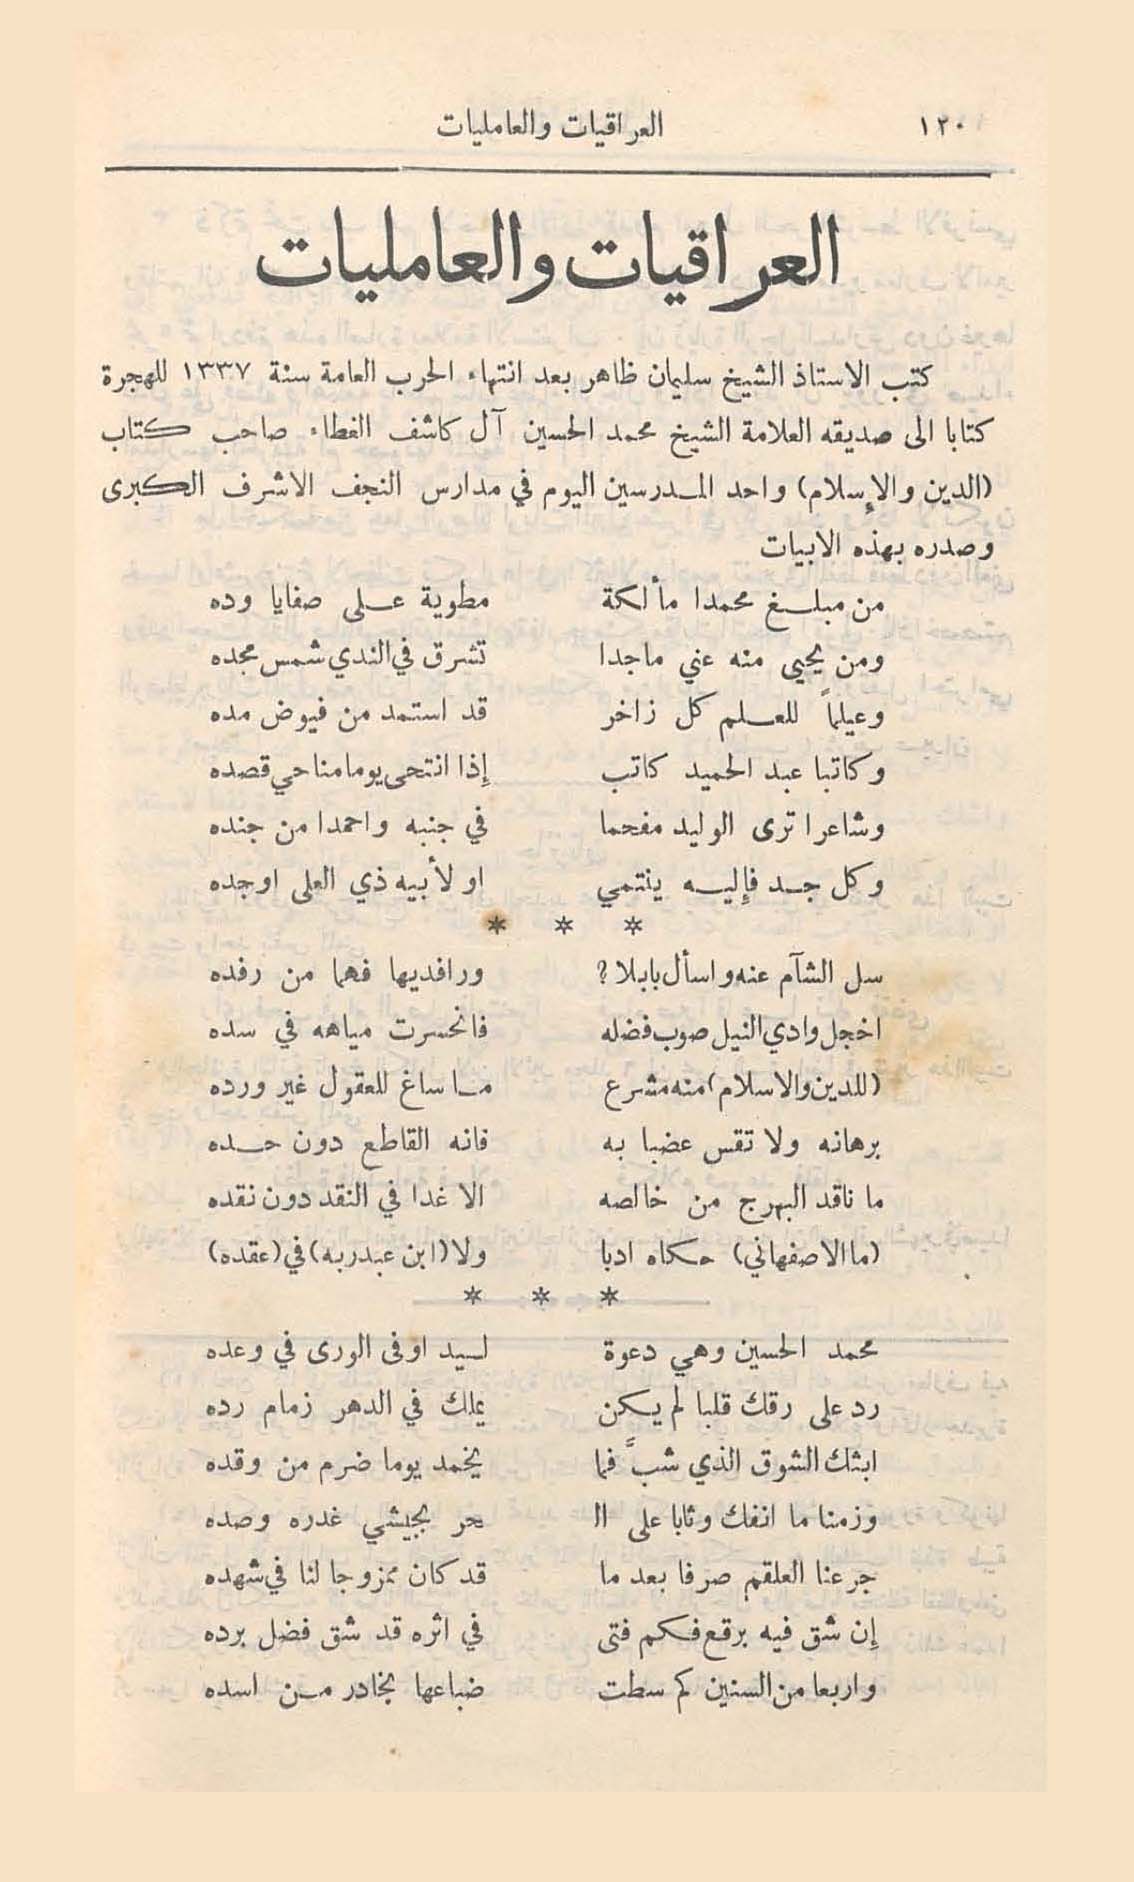 ١٢٠ العراقيات والعامليات
العراقيات والعامليات
كتب الاستاذ الشيخ سليمان ظاهر بعد انتهاء الحرب العامة سنة ١٣٣٧ للهجرة
كتابا الى صديقه العلامة الشيخ محمد الحسين آل كاشف الغطاء صاحب كتاب
(الدين والإسلام) واحد المدرسين اليوم في مدارس النجف الاشرف الكبرى
وصدره بهذه الابيات
من مبلغ محمدا مألكة مطوية على صفايا وده
ومن يحيي منه عني ماجدا تشرق في الندي شمس مجده
وعيلماً للعلم كل زاخر قد استمد من فيوض مده
وكاتبا عبد الحميد كاتب إذا انتحى يوما مناحي قصده
وشاعرا ترى الوليد مفحما في جنبه واحمدا من جنده
وكل جد فإليه ينتمي او لأبيه ذي العلى اوجده
* * *
سل الشآم عنه واسأل بابلا؟ ورافديها فهما من رفده
اخجل وادي النيل صوب فضله فانحسرت مياهه في سده
(للدين والاسلام) منه مشرع ما ساغ للعقول غير ورده
برهانه ولا تقس عضبا به فانه القاطع دون حده
ما ناقد البهرج من خالصه الا غدا في النقد دون نقده
(ما الاصفهاني) حكاه ادبا ولا (ابن عبدربه) في (عقده)
* * *
محمد الحسين وهي دعوة لسيد اوفى الورى في وعده
رد على رقك قلبا لم يكن يملك في الدهر زمام رده
ابثك الشوق الذي شبَّ فما يخمد يوما ضرم من وقده
وزمنا ما انفك وثابا على ال حر بجيشي غدره وصده
جرعنا العلقم صرفا بعد ما قد كان ممزوجا لنا في شهده
إن شق فيه برقع فكم فتى في اثره قد شق فضل برده
واربعا من السنين كم سطت ضباعها بخادر من اسده